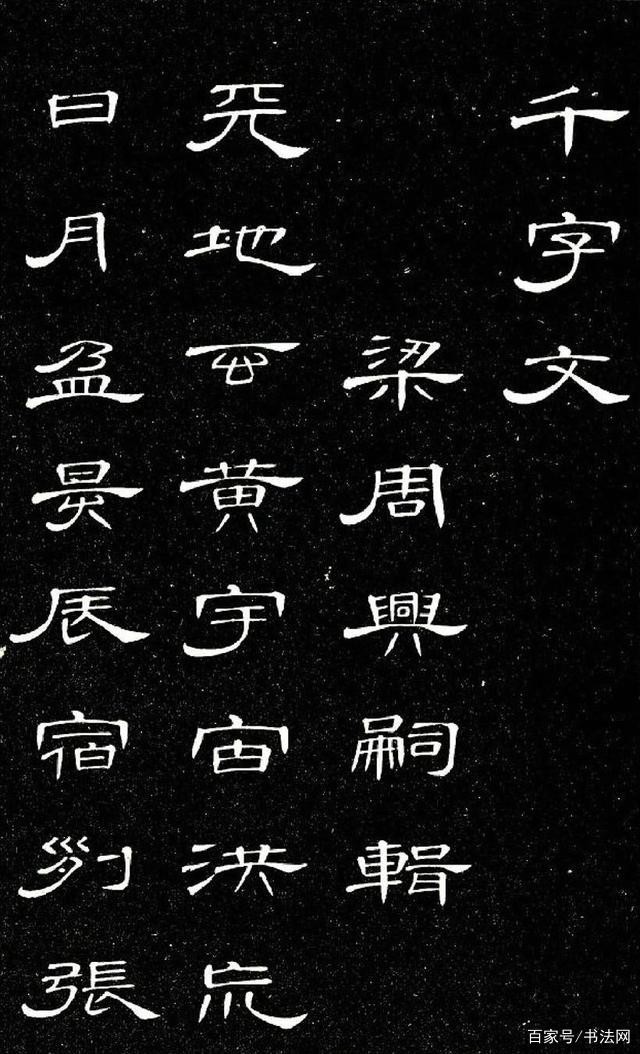 千字文
梁周興嗣輯
天地玄黄宇宙洪荒
日月盈昃辰宿列張
百家号/书法网